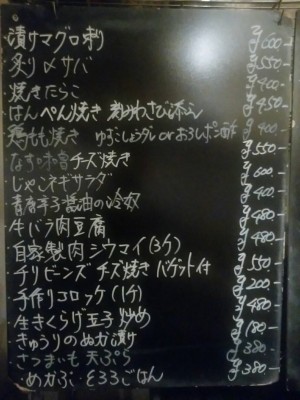 漬けマグロ刺 ¥600-
・炙り〆サバ ¥550-
・焼きたらこ ¥400-
・はんぺん焼き 粗わさび添え ¥450-
・鶏もも焼き ゆずこしょうダレ or おろしポン酢 ¥400-
・なす味噌チーズ焼き ¥550-
・じゃこネギサラダ ¥600-
・青唐辛子醤油の冷奴 ¥400-
・牛バラ肉豆腐 ¥480-
・自家製肉シウマイ(3ケ) ¥480-
・チリビーンズ チーズ焼き バゲット付 ¥550-
・手作りコロッケ(1ケ) ¥200-
・生きくらげ玉子炒め ¥480-
・きゅうりのぬか漬け ¥180-
・さつまいも天ぷら ¥380-
・めかぶとろろごはん ¥380-